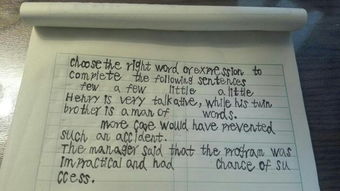 choose the right word or expression to
complete the following sentences
few a few little a little
Henry is very talkative, while his twin
brother is a man of words.
more care would have prevented
such an accident.
The manager said that the program was
impractical and had chance of su
ccess.